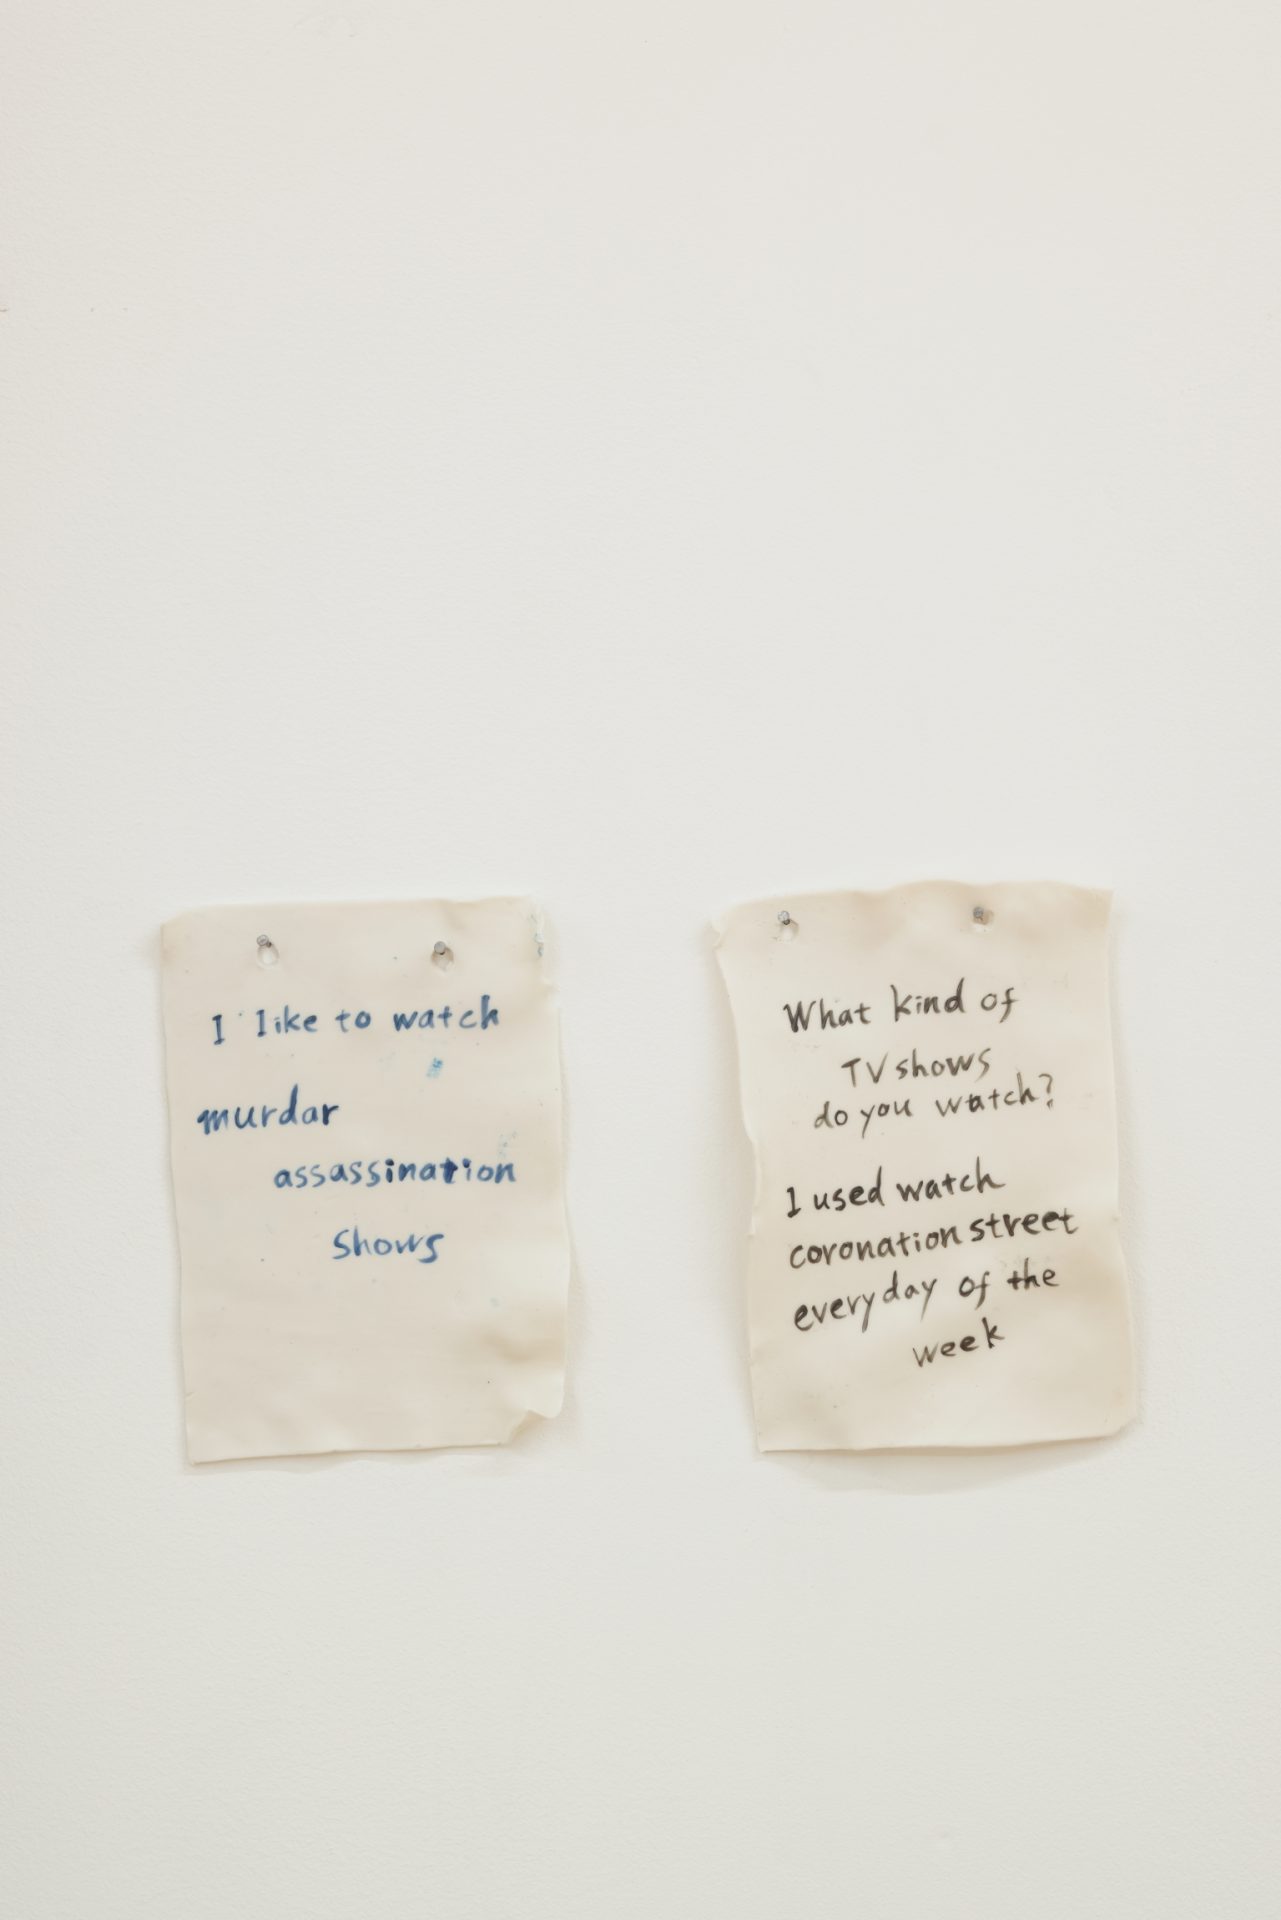 I like to watch
murdar
assassination
Shows
What kind of
TV shows
do you watch?
I used watch
coronation street
everyday of the
week